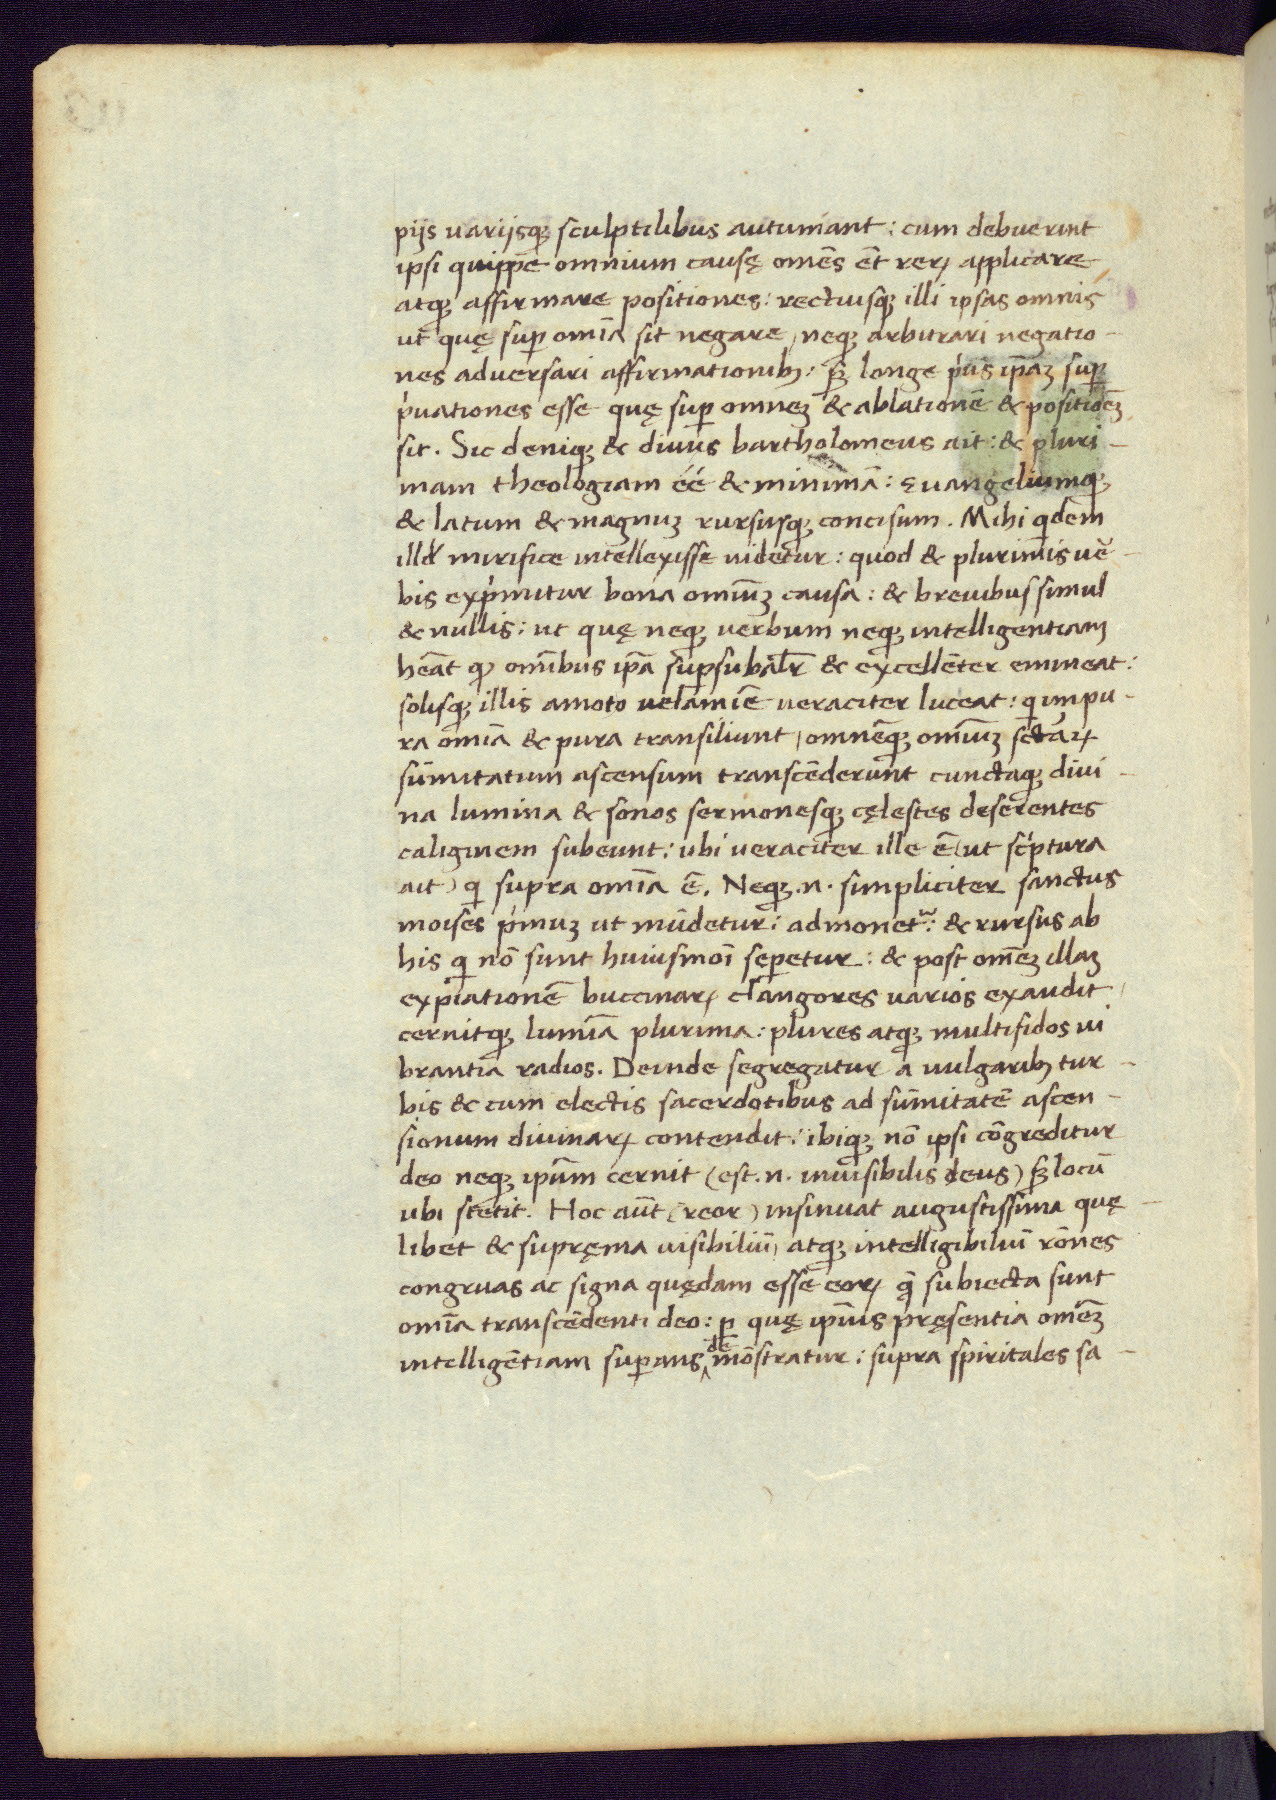 pijs variisq; sculptilibus autumant: cum debuerint
ipsi quippe omnium causę om̄s ēt reꝝ applicare
atq; affirmare positiones: rectiusq; illi ipsas omnis
ut quę suꝑ om̄ia sit negare, neq; arbitrari negatio-
nes adversari affirmationibꝫ: sꝫ longe p̍us ip̄aꝫ suꝑ
p̍vationes esse quę suꝑ omneꝫ & ablationē & positio᷒eꝫ
sit. Sic deniq; & divus bartholomeus ait: & pluri-
mam theologiam éé & minimā: ęvangeliumq;
& latum & magnuꝫ rursusq; concisum. Mihi qdem
illd mirifice intellexisse videtur: quod & plurimis vē-
bis exp̍mitur bona om̄iuꝫ causa: & brevibus simul
& nullis: ut quę neq; verbum neq; intelligentiam
hēat qꝫ om̄ibus ip̄a suꝑsubāl̄r & excellēter emineat:
solisq; illis amoto velamīe veraciter luceat: qi impu-
ra om̄ia & pura transiliunt, omnēq; om̄iuꝫ sctāꝝ
sūmitatum ascensum transcēderunt cunctaq; divi-
na lumina & sonos sermonesq; cęlestes deserentes
caliginem subeunt: ubi veraciter ille ē (ut sc̍ptura
ait) qi supra om̄ia ē. Neq; .n. simpliciter sanctus
moises p̍muꝫ ut mūdetur: admonet᷒: & rursus ab
his qi nō sunt huiusmōi seꝑetur: & post om̄eꝫ illaꝫ
expiationē buccinaꝝ clangores varios exaudit,
cernitq; lumīa plurima: plures atq; multifidos vi
brantia radios. Deinde segregatur a vulgaribꝫ tur-
bis & cum electis sacerdotibus ad sūmitatē ascen-
sionum divinaꝝ contendit: ibiq; nō ipsi cōgreditur
deo neq; ipsum cernit (est .n. invisibilis deus) sꝫ locū
ubi stetit. Hoc aūt (reor) insinuat augustissima quę-
libet & supręma visibiliū, atq; intelligibiliū rōnes
congruas ac signa quędam esse eoꝝ q̄ subiecta sunt
om̄ia transcēdenti deo: ꝑ quę ip̄ius pręsentia om̄eꝫ
intelligētiam suꝑans demōstratur: supra spiritales sa-